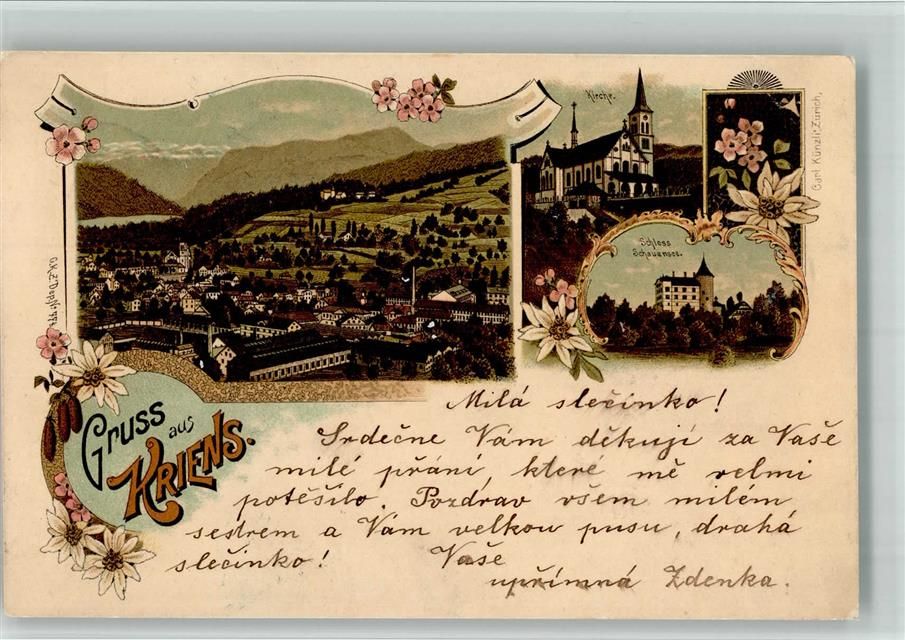 Kirche.
Carl Künzli, Zürich,
Schloss
Schauensee.
Gruss aus
KRIENS.
Milá slečinko!
Srdečne Vám děkuji za Vaše
milé přání, které mě velmi
potěšilo. Pozdrav všem milém
sestrem a Vám velkou pusu, drahá
slečinko! Vaše
upřímná Zdenka.